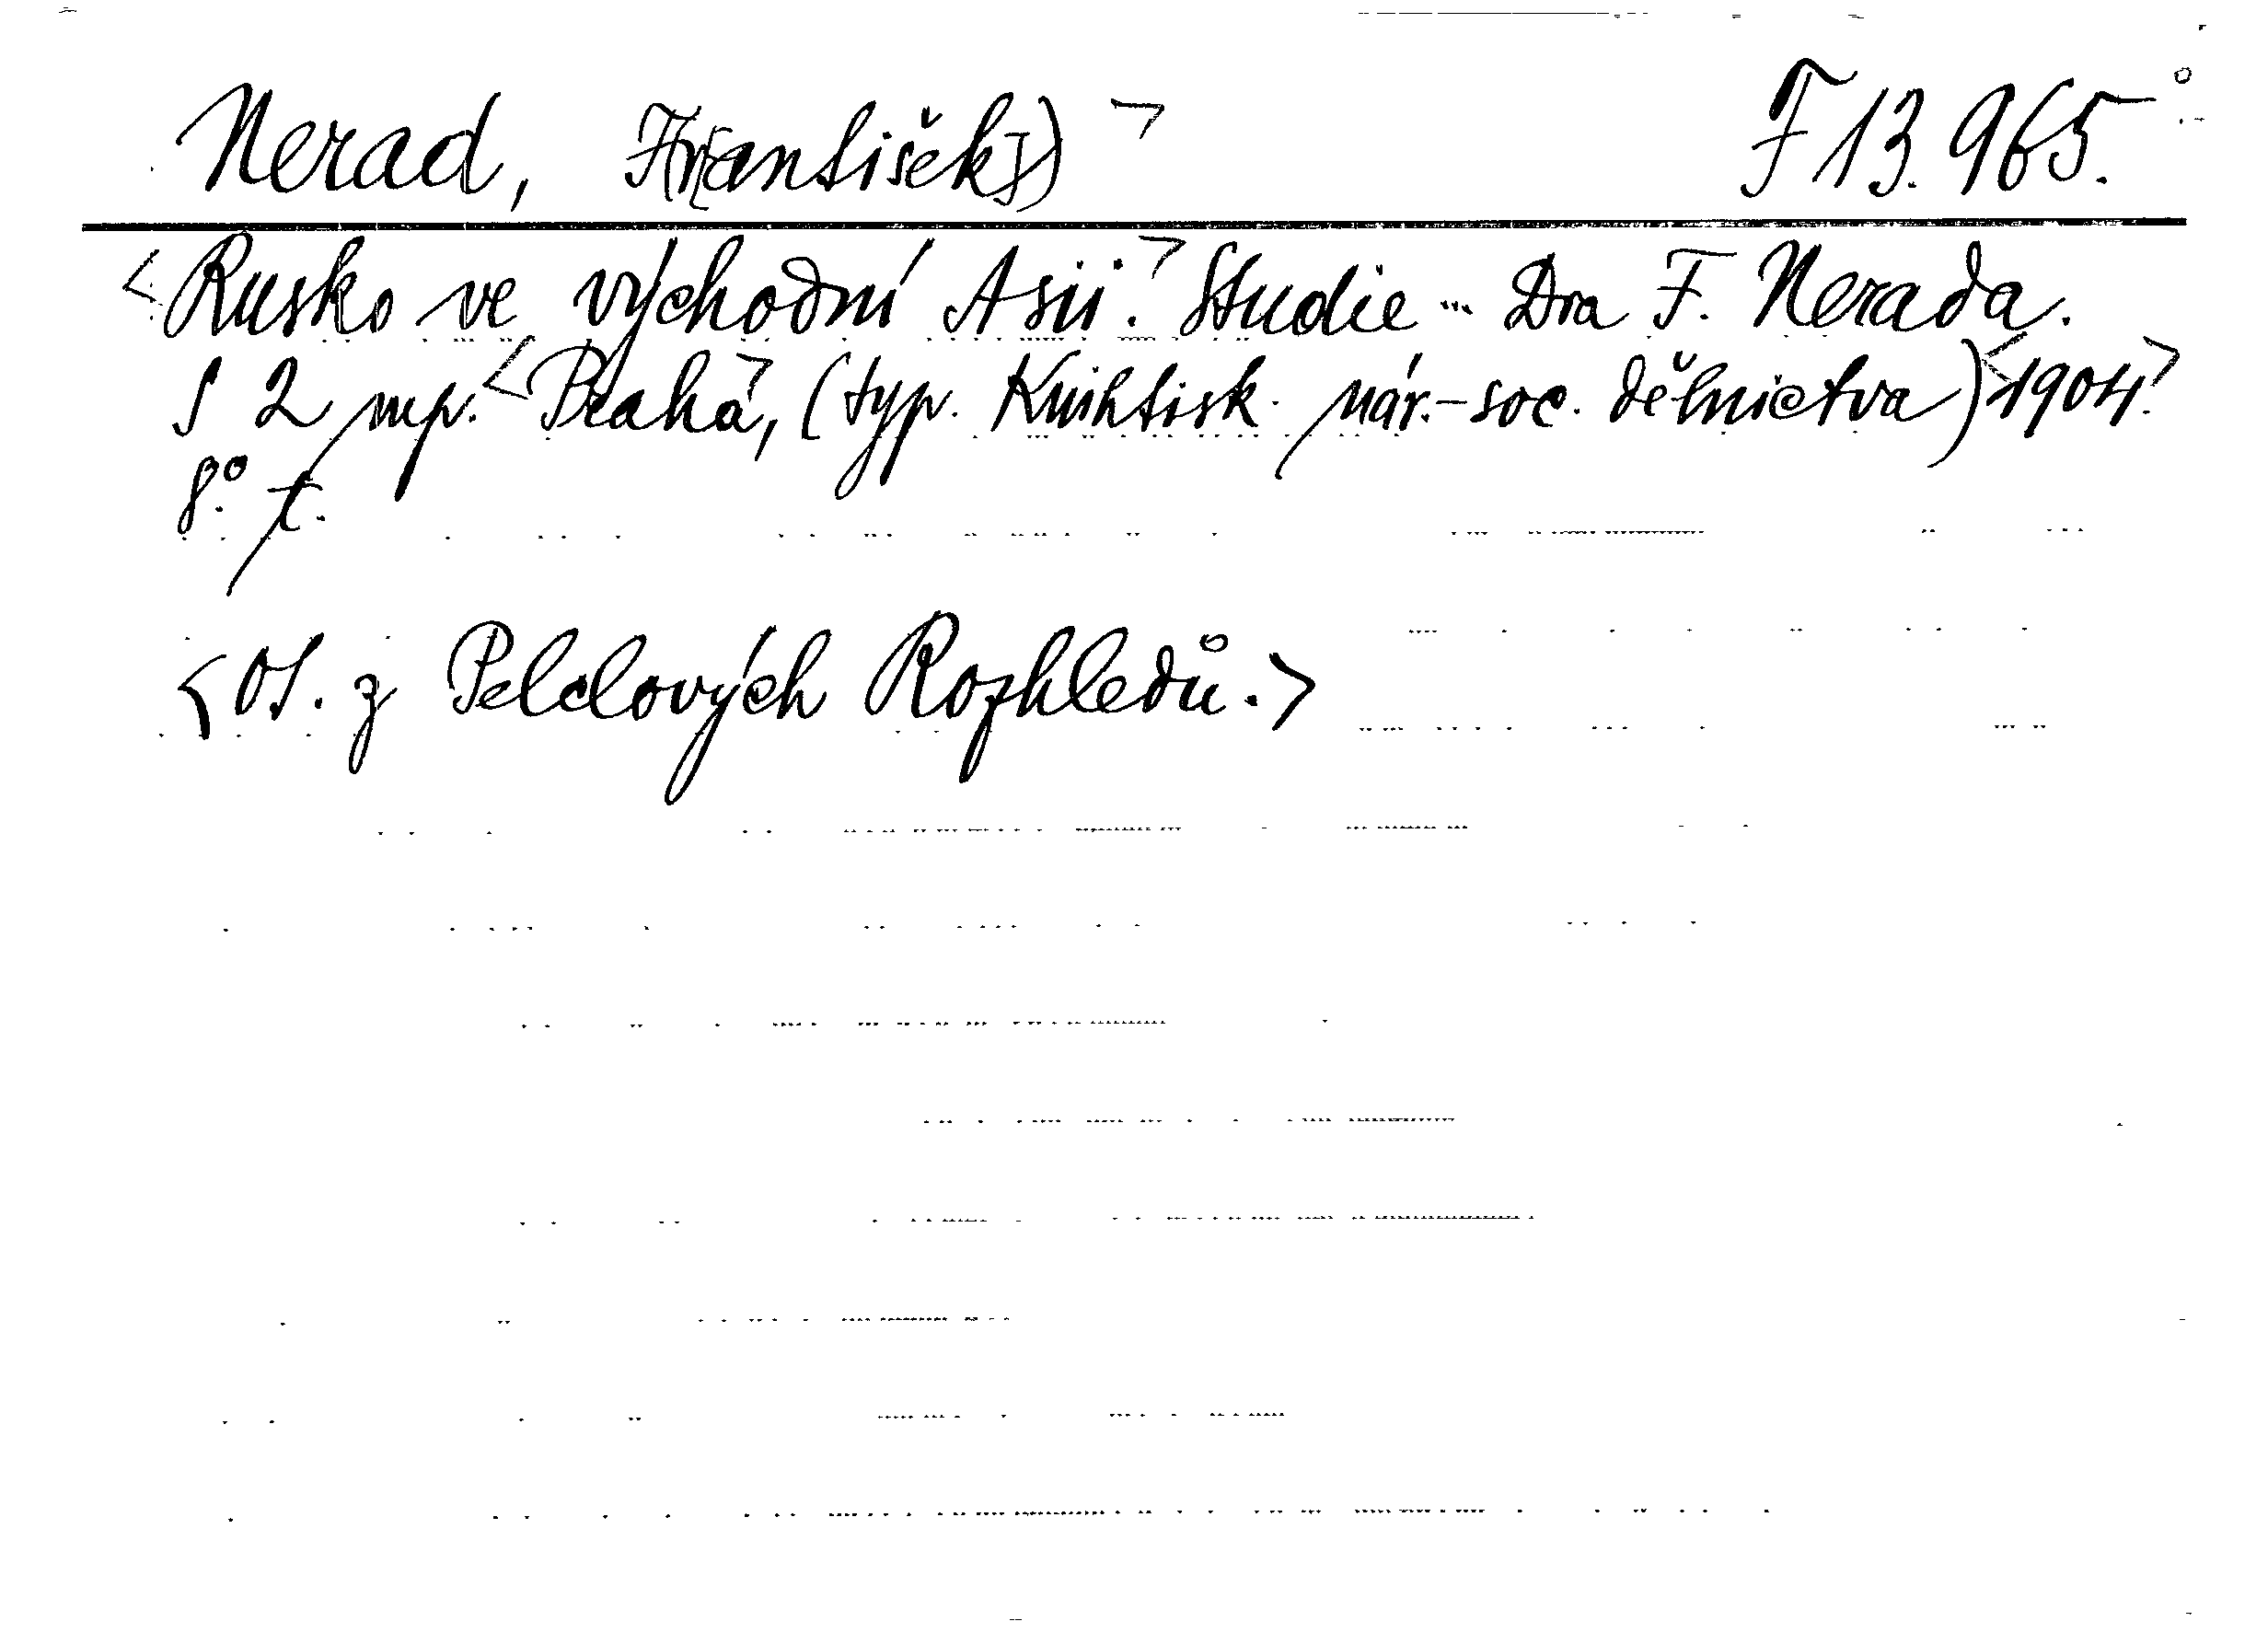 Nerad, F(r[antišek]) > F 13.965.
<Rusko ve východní Asii.> Studie ... Dra F. Nerada.
S 2 mp. <Praha>, (typ. Knihtisk. nár.-soc. dělnictva) <1904.>
8.° t.
<Ot. z Pelclových Rozhledů.>